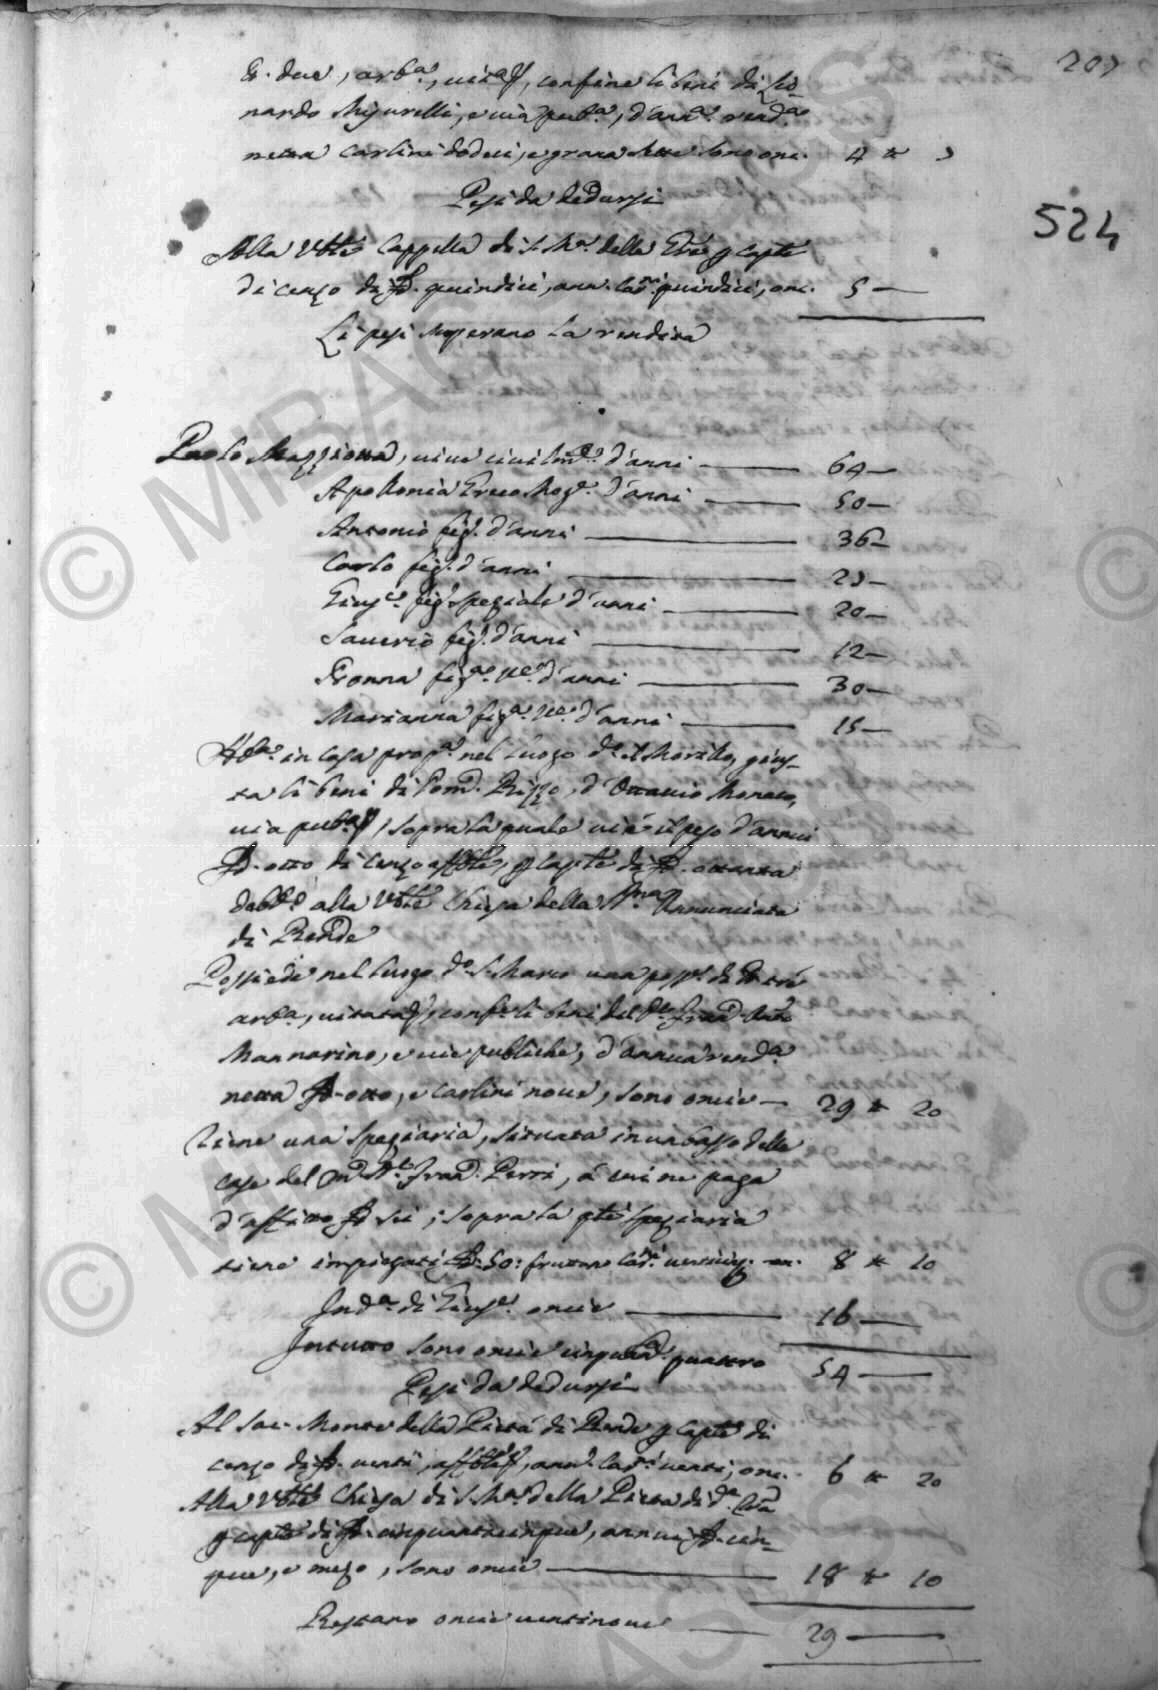 207
524
due, arb.a, vit.a, confine li beni di Lio-
nardo, e via pub.a, d'ann.a rend.a
netta carlini dodeci, e grana sette sono onc. 4
Pesi da dedursi
Alla V.ble Cappella di S. M.a della p cap.le
di censo di D. quindici, ann. car.ni quindici, onc. 5 —
Li pesi superano la rendita
Paolo Mazziotta, vive civilm.e d'anni — 64 —
Apollonia Greco Mog.e d'anni — 50 —
Antonio fig.o d'anni — 36 —
Carlo fig.o d'anni — 23 —
Gius.e fig.o speziale d'anni — 20 —
Saverio fig.o d'anni — 12 —
fig.a d'anni — 30 —
Marianna fig.a d'anni — 15 —
Ab.a in casa prop.a nel luogo d.o, gius-
ta li beni di Rizzo, d'Ottavio Monaco,
via pub.a, sopra la quale vi è il peso d'annui
D. otto di censo, p cap.le di D. ottanta
alla V.ble Chiesa della SS.ma Annunciata
di Rende
Possiede nel luogo d.o S. Marco una poss.e di tre
arb.a, vitata, conf.e li beni del
Mannarino, e vie publiche, d'annua rend.a
netta D. otto, e carlini nove, sono oncie — 29 20
Tiene una speziaria, situata in un basso delle
case del Fran.o Perri, à cui ne paga
d'affitto D. sei; sopra la speziaria
tiene impiegati D. 50: fruttano car.ni venticinq. on. 8 10
Ind.a di Gius.e oncie — 16 —
In tutto sono oncie cinquanta quattro 54 —
Pesi da dedursi
Al Sac. Monte della Pietà di Rende p cap.le di
censo di D. venti, ann. car.ni venti, onc. 6 20
Alla V.ble Chiesa di S. M.a della Pietà di d.a
p cap.le di D. cinquantacinque, annui D. cin-
que, e mezo, sono oncie — 18 10
Restano oncie ventinove — 29 —
© MIBAC ASCS
© MIBAC ASCS